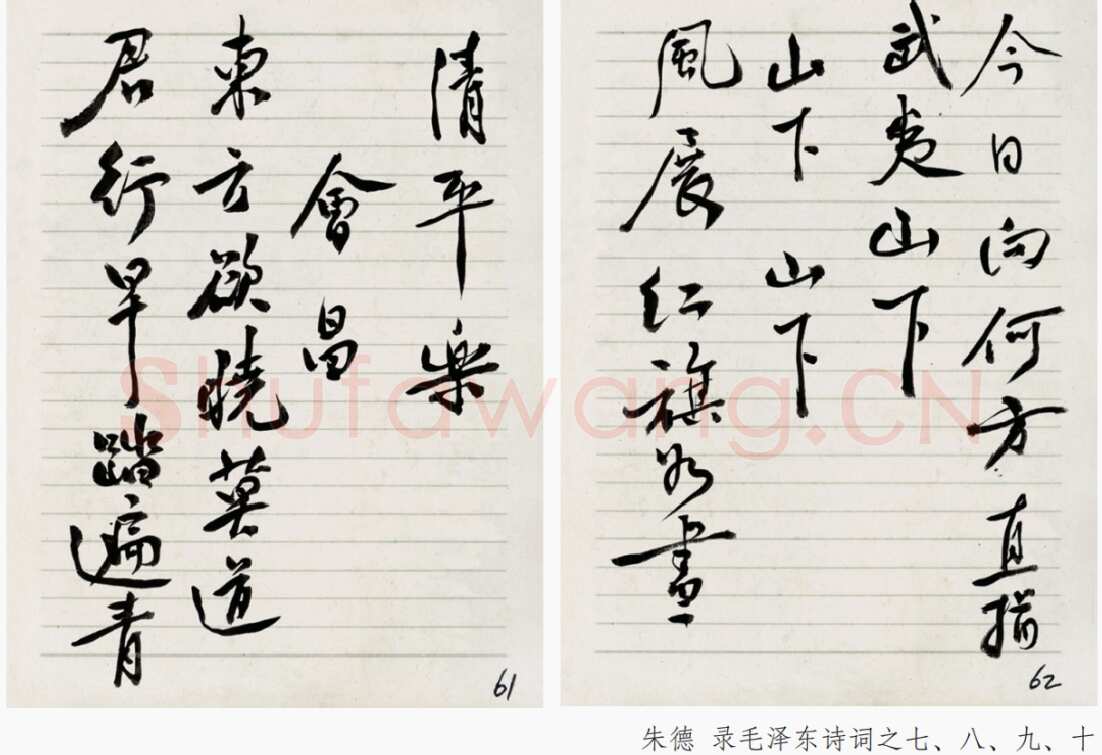 今日向何方直指
武夷山下
山下山下
風展红旗如畫
62
清平樂
會昌
東方欲曉莫道
君行早踏遍青
61
Shufawang.CN
朱德 录毛泽东诗词之七、八、九、十